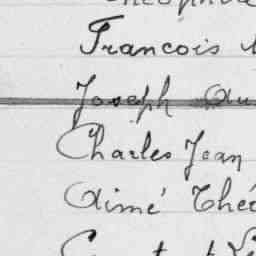 Francois
Joseph Au
Charles Jean
Aimé Thé